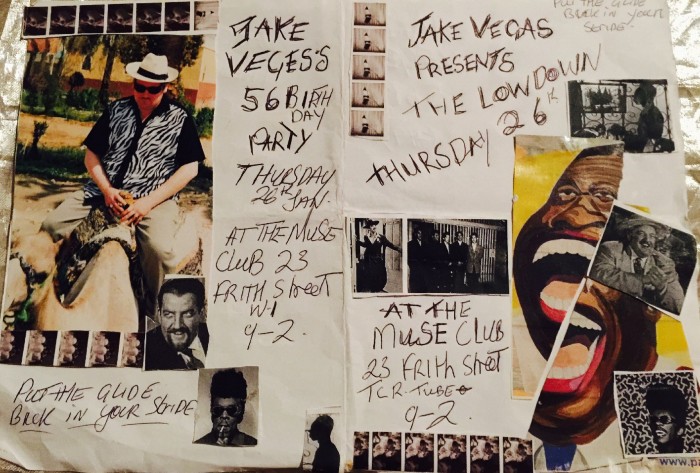 JAKE
VEGES'S
56 BIRTH
DAY
PARTY
THURSDAY
26TH JAN.
AT THE MUSE
CLUB 23
FRITH Street
W.1
9-2.
PUT THE GLIDE
BACK IN YOUR STRIDE
PUT THE GLIDE
BACK IN YOUR
STRIDE.
JAKE VEGAS
PRESENTS
THE LOWDOWN
26TH
THURSDAY
AT THE
MUSE CLUB
23 FRITH Street
TCR. TUBE
9-2.
www.p